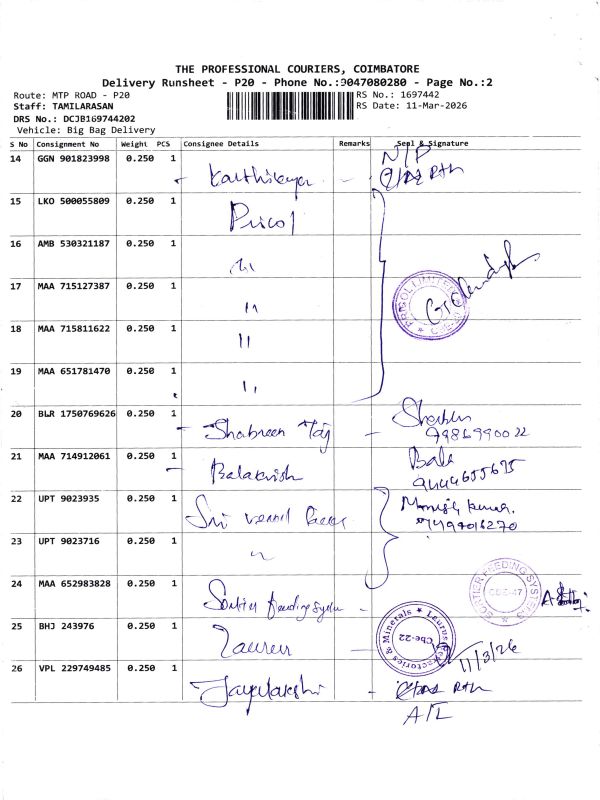 THE PROFESSIONAL COURIERS, COIMBATORE
Delivery Runsheet - P20 - Phone No.:9047080280 - Page No.:2
Route: MTP ROAD - P20
RS No.: 1697442
Staff: TAMILARASAN
RS Date: 11-Mar-2026
DRS No.: DCJB169744202
Vehicle: Big Bag Delivery
S No Consignment No Weight PCS Consignee Details Remarks Seal & Signature
14 GGN 901823998 0.250 1 Karthikeyan N/P
15 LKO 500055809 0.250 1 Pricol
16 AMB 530321187 0.250 1 "
17 MAA 715127387 0.250 1 "
PRICOL LIMITED
18 MAA 715811622 0.250 1 "
19 MAA 651781470 0.250 1 "
20 BLR 1750769626 0.250 1 Shabreen Taj
9986990022
21 MAA 714912061 0.250 1 Balakrish Bala
9444655675
22 UPT 9023935 0.250 1 Sri
Manish kumar.
23 UPT 9023716 0.250 1 "
24 MAA 652983828 0.250 1
FEEDING SYSTEMS CBE-47
25 BHJ 243976 0.250 1
Laurus Refractories & Minerals Cbe-22
11/3/26
26 VPL 229749485 0.250 1 Jayalakshi
A/L